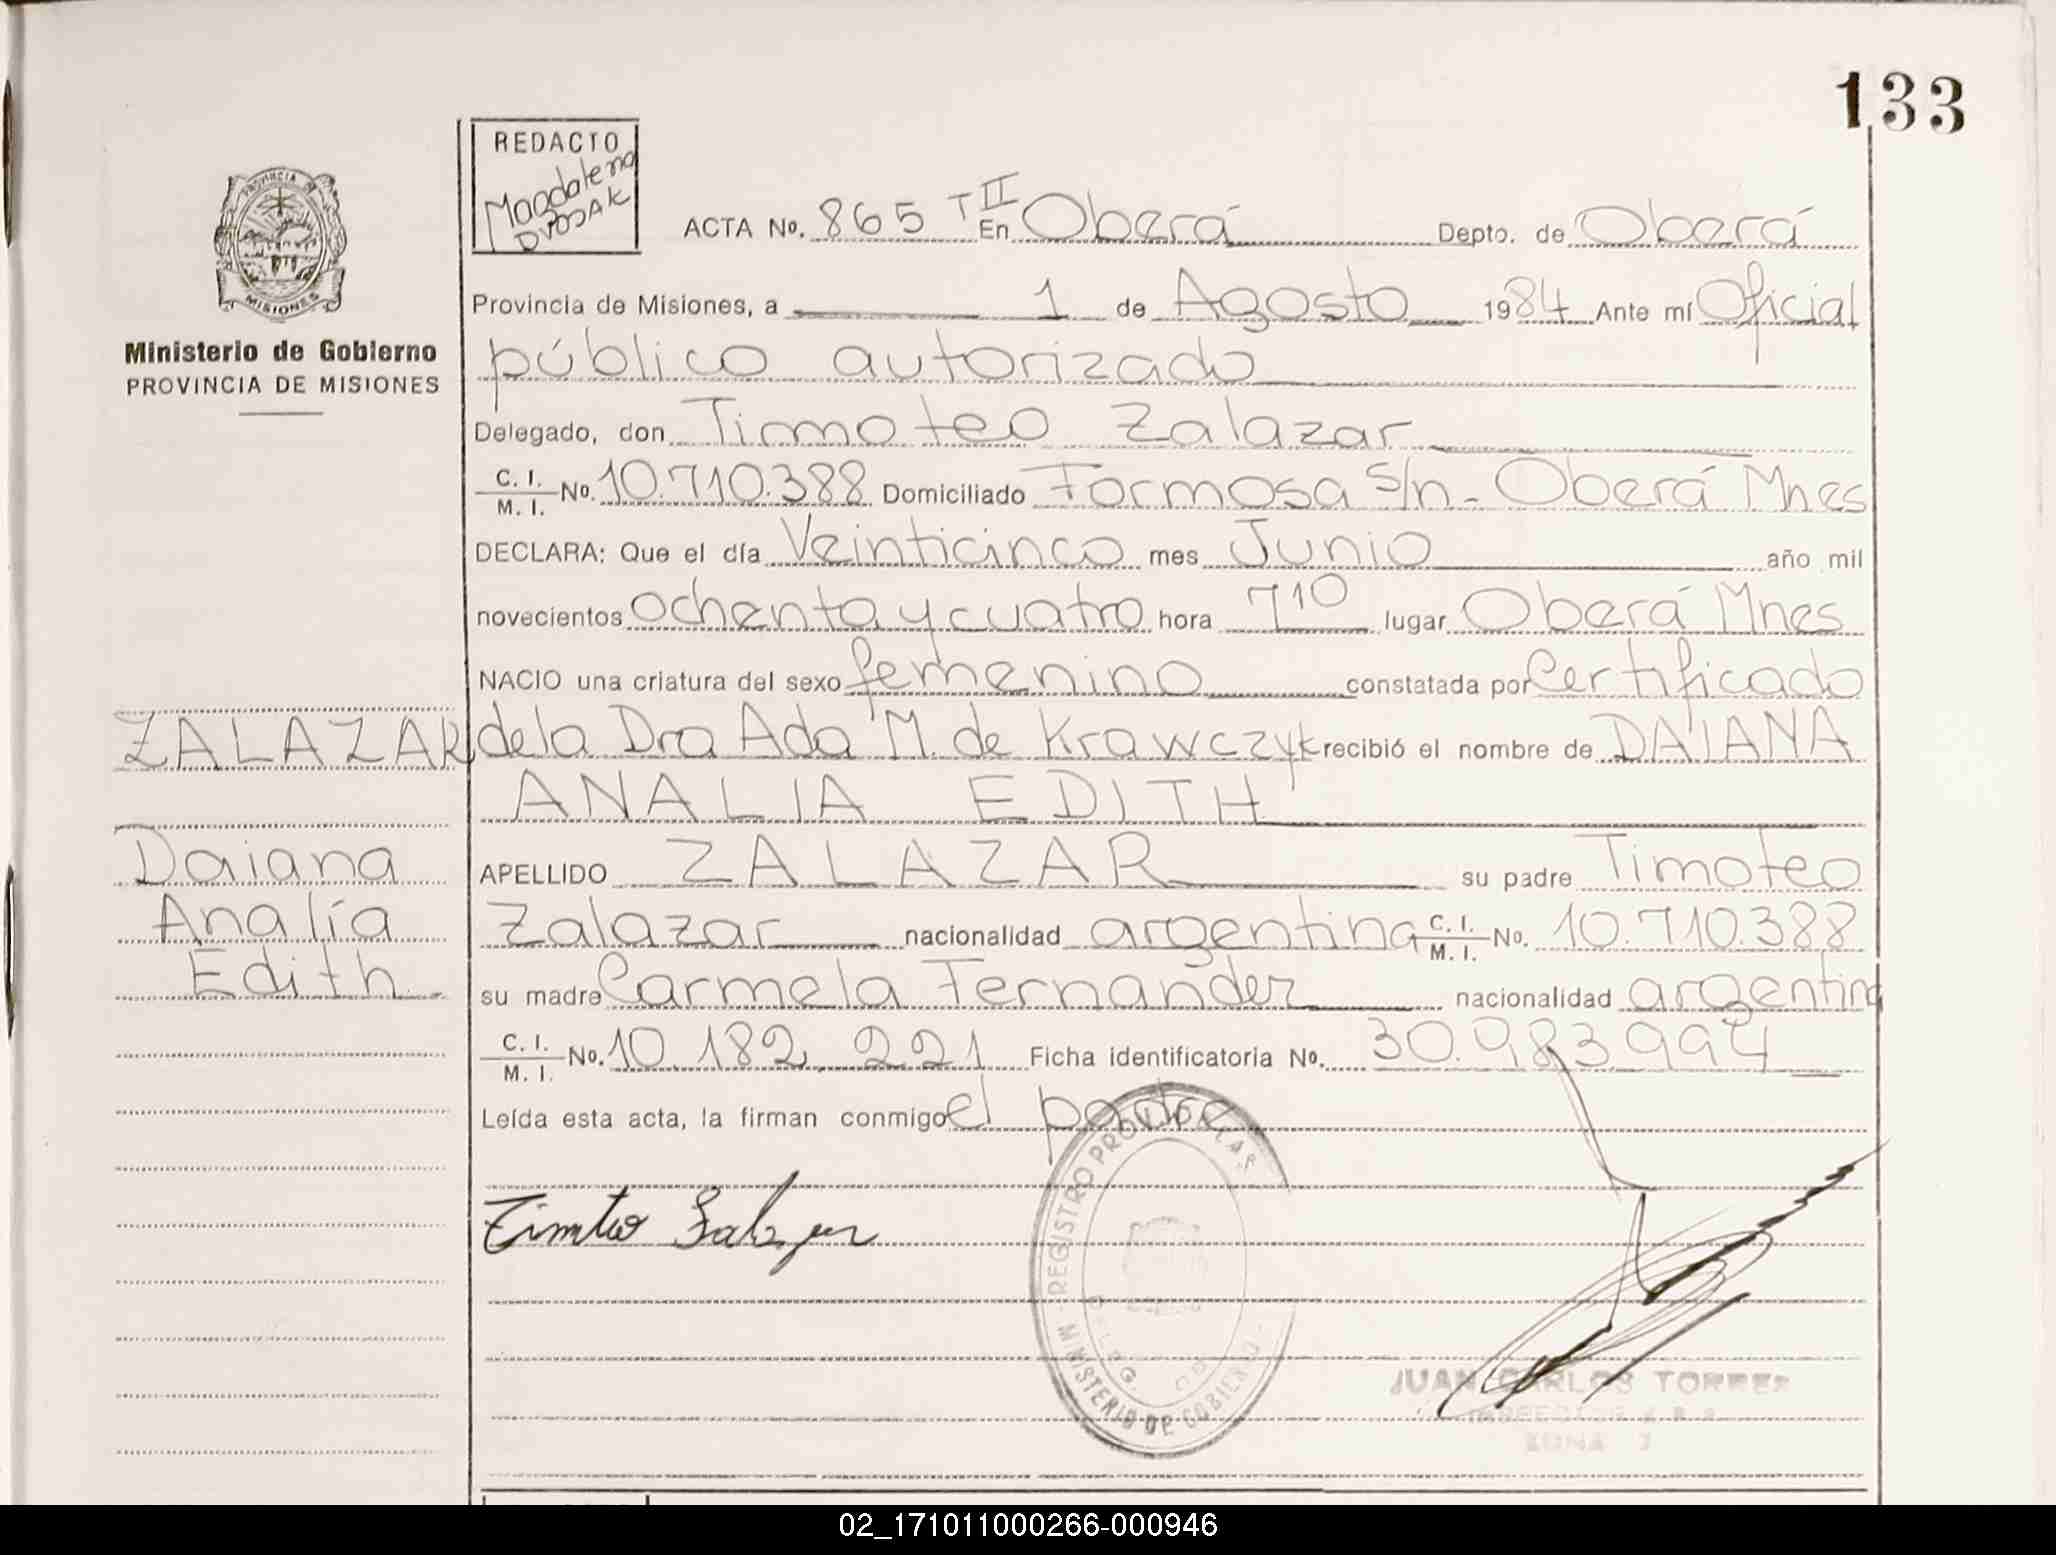 133
REDACTO
Magdalena
DVOJAK
PROVINCIA DE
MISIONES
Ministerio de Gobierno
PROVINCIA DE MISIONES
ACTA No. 865 T II En Oberá Depto. de Oberá
Provincia de Misiones, a 1 de Agosto 1984 Ante mí Oficial
público autorizado
Delegado, don Timoteo Zalazar
C. I. / M. I. No. 10.710.388 Domiciliado Formosa s/n - Oberá Mnes
DECLARA: Que el día Veinticinco mes Junio año mil
novecientos ochenta y cuatro hora 7 10 lugar Oberá Mnes
NACIO una criatura del sexo femenino constatada por Certificado
ZALAZAR
de la Dra Ada M. de Krawczyk recibió el nombre de DAIANA
ANALIA EDITH
Daiana
Analía
Edith
APELLIDO ZALAZAR su padre Timoteo
Zalazar nacionalidad argentina C. I. / M. I. No. 10.710.388
su madre Carmela Fernandez nacionalidad argentina
C. I. / M. I. No. 10.182.221 Ficha identificatoria No. 30.983.994
Leída esta acta, la firman conmigo el padre
Timteo Salazar
REGISTRO PROV. DE LAS
MINISTERIO DE GOBIERNO
JUAN CARLOS TORRES
INSPECTOR
ZONA
02_171011000266-000946